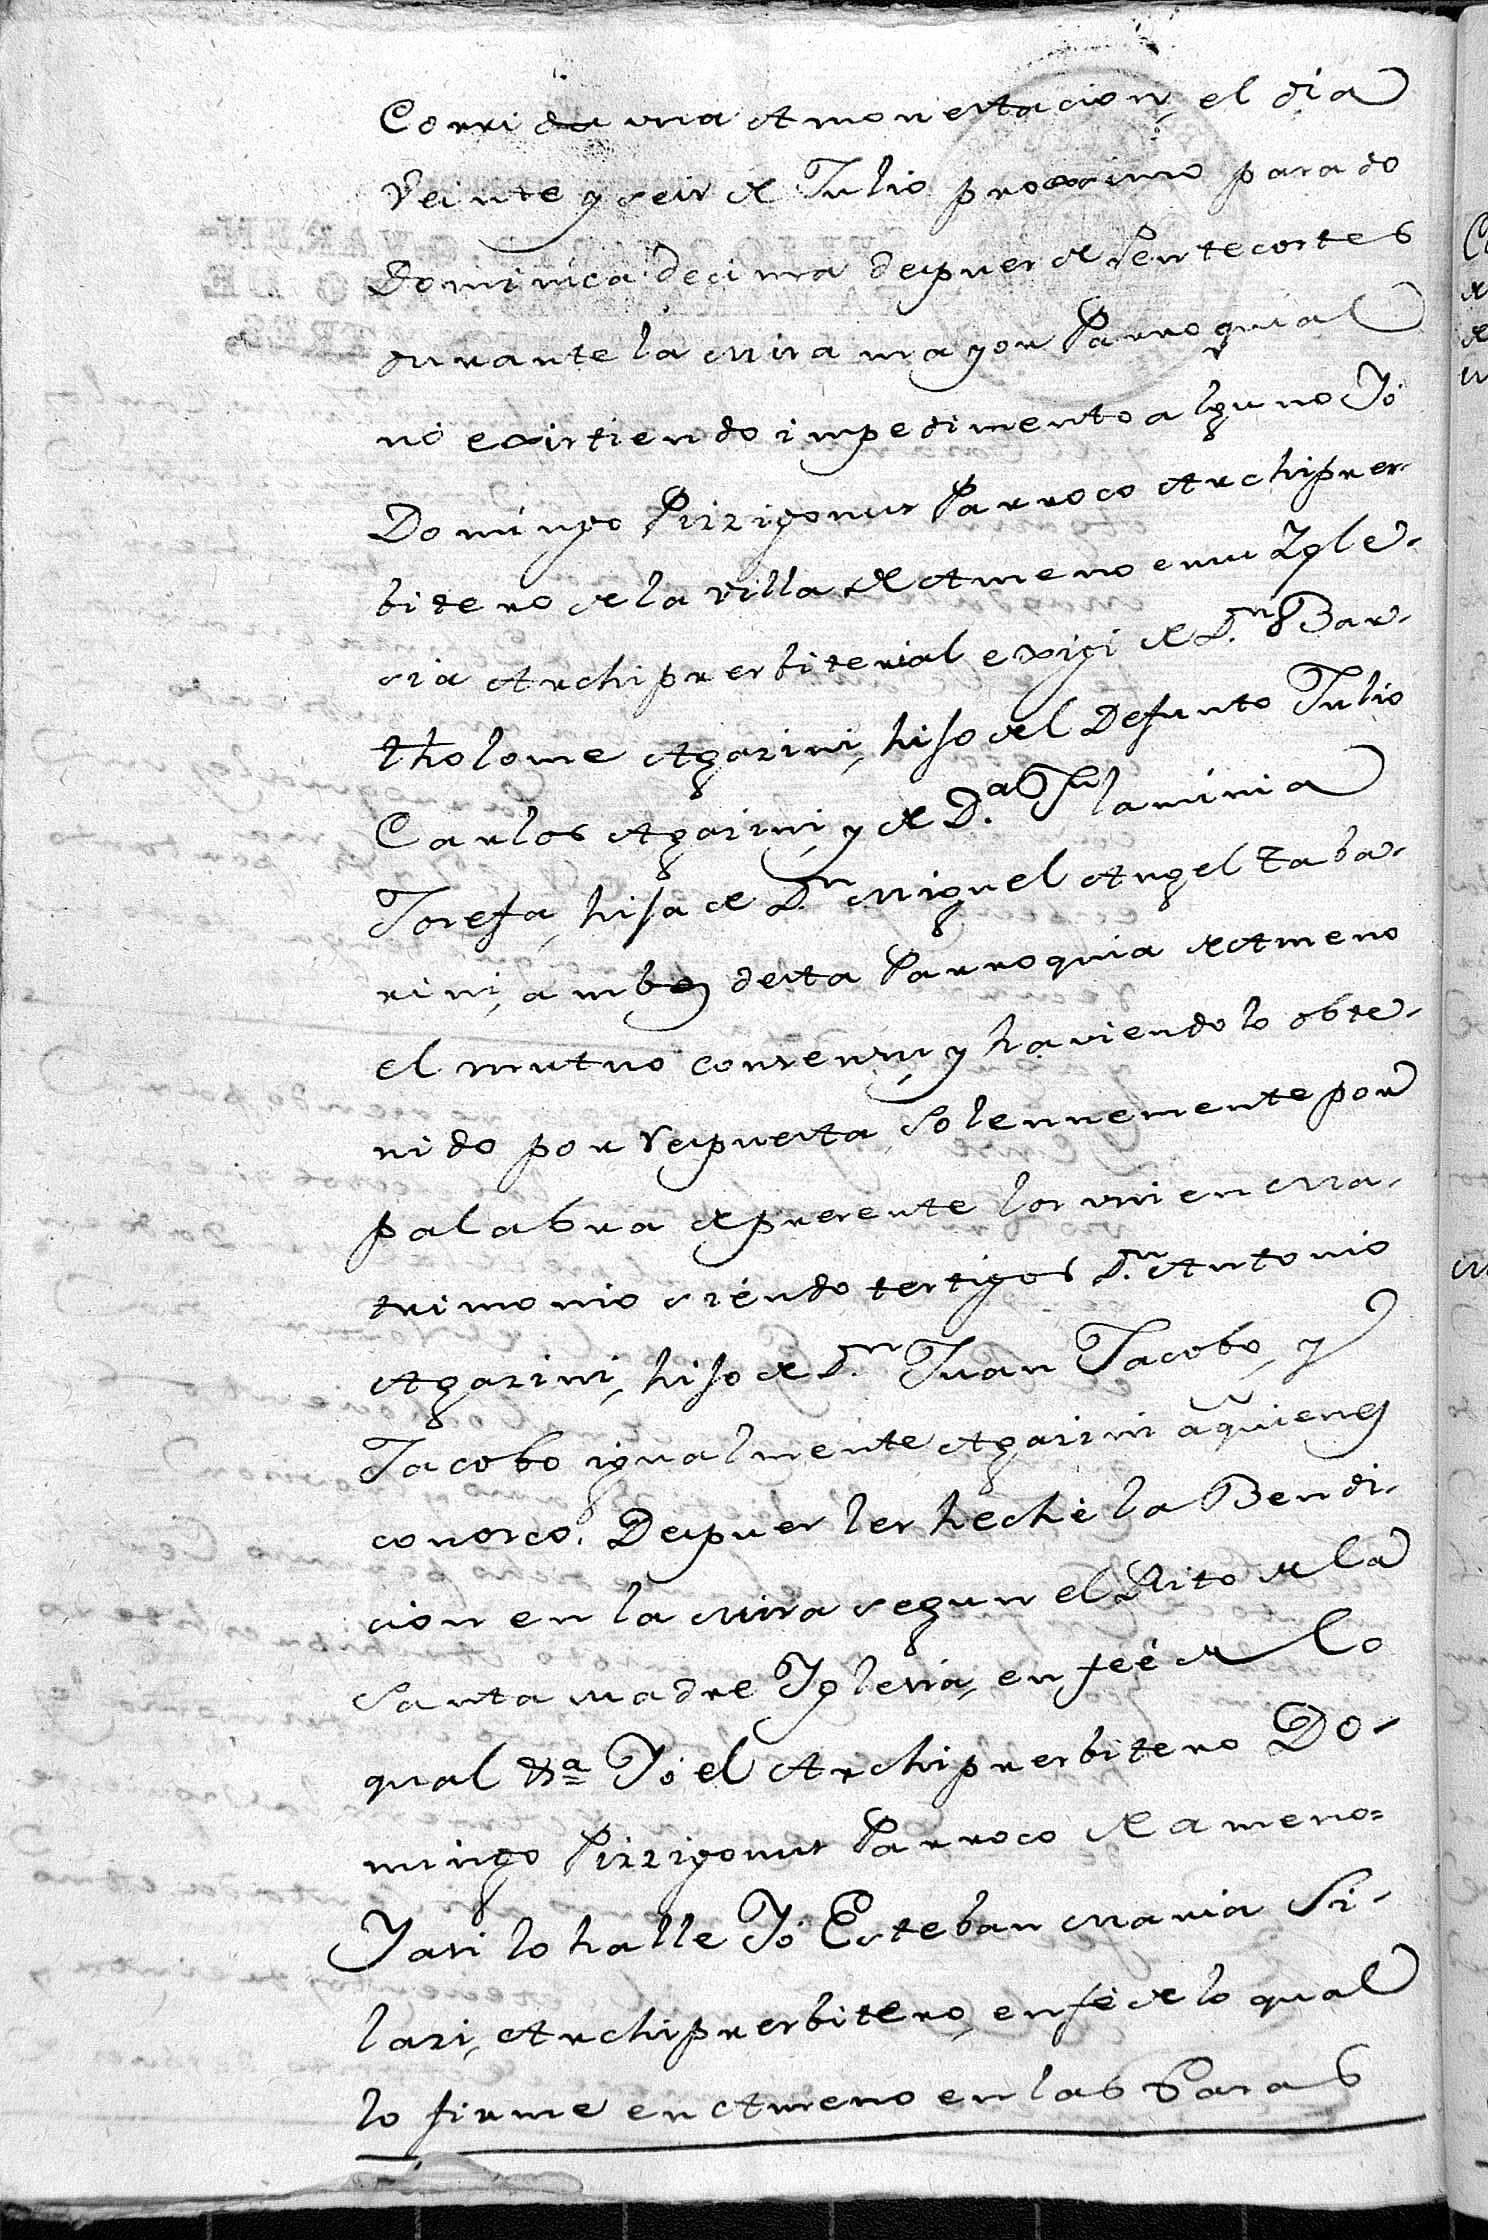 Corrida una Amonestacion, el dia
Veinte y seis de Julio proximo pasado
Dominica decima despues de Pentecostes
durante la Missa mayor Parroquial
no existiendo impedimento alguno Yó
Domingo Pizzigonus Parroco Archipres-
bitero de la villa de Ameno en su Ygle-
sia Archipresbiterial exigi de D.n Bar-
tholome Agazini, hijo del Defunto Julio
Carlos Agazini, y de D.a Flaminia
Josefa, hija de D.n Miguel Angel Zaba-
rini, ambos desta Parroquia de Ameno
el mutuo consensu, y haviendolo obte-
nido por respuesta, solennemente por
palabra de presente los uni en Ma-
trimonio siendo testigos D.n Antonio
Agazini, hijo de D.n Juan Jacobo, y
Jacobo igualmente Agazini à quienes
conosco. Despues les heché la Bendi-
cion en la Misa segun el Rito de la
Santa Madre Yglesia, en feé de lo
qual &a Yó el Archipresbitero Do-
mingo Pizzigonus Parroco de Ameno=
Y asi lo halle Yó Esteban Maria Si-
lazi, Archipresbitero, en fé de lo qual
lo firme en Ameno en las Casas